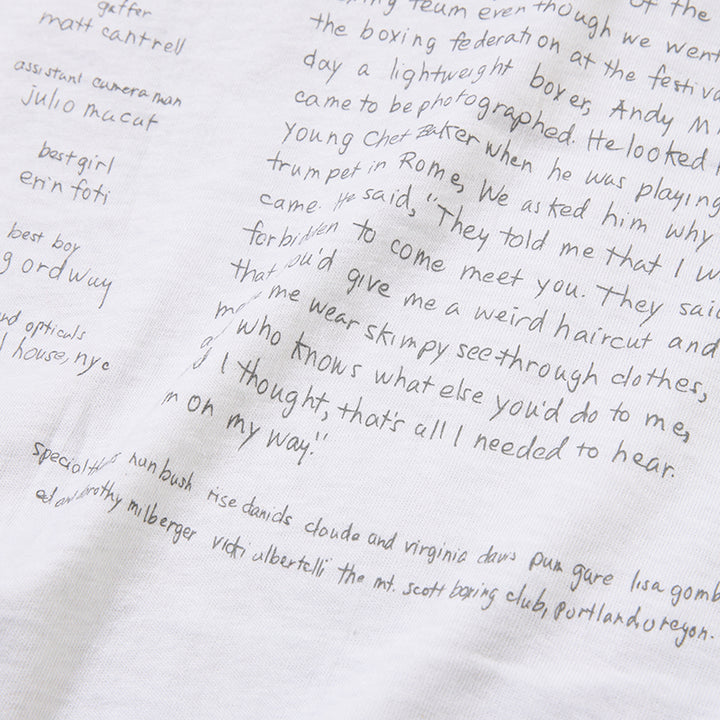 gaffer
matt cantrell
assistant cameraman
julio macat
best girl
erin foti
best boy
g ordway
nd opticals
house, nyc
of the
team even though we went
the boxing federation at the festiva
day a lightweight boxer, Andy M
came to be photographed. He looked
young Chet Baker when he was playing
trumpet in Rome, We asked him why
came. He said, "They told me that I w
forbidden to come meet you. They said
that you'd give me a weird haircut and
me wear skimpy see-through clothes,
who knows what else you'd do to me,
I thought, that's all I needed to hear.
m on my way."
special nan bush rise daniels claude and virginia davis pum gare lisa gomb
ed and dorothy milberger vicki albertelli the mt. scott boxing club, portland, oregon.